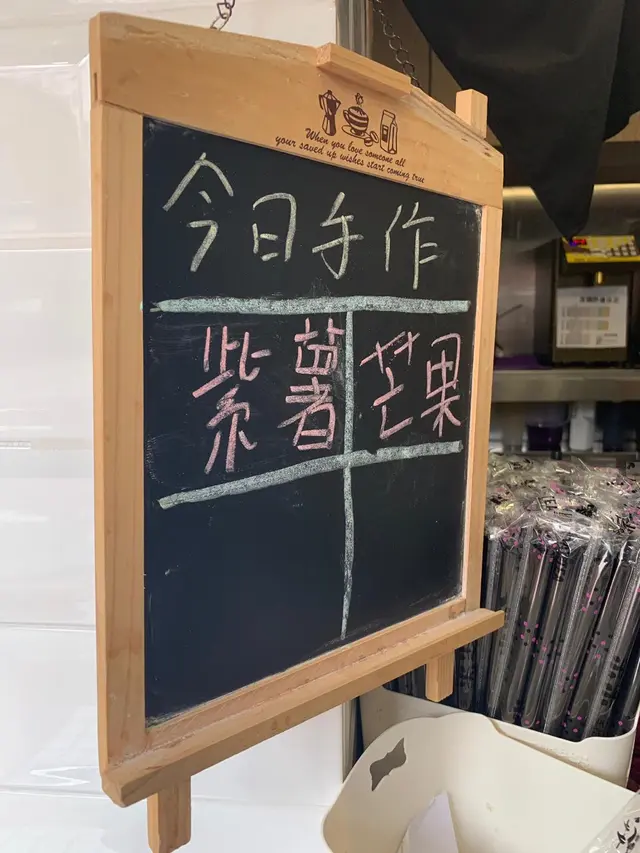 When you love someone all
your saved up wishes start coming true
今日手作
紫薯 芒果